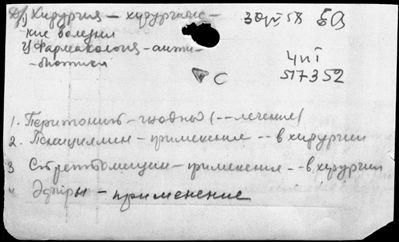 Хирургия - хирургичес- 30лг 58
кие болезни
2) Фармакология - анти-
- биотики
4 п I
517352
С
1. Перитонит - гнойный (-- лечение)
2. Пенициллин - применение -- в хирургии
3 Стрептомицин - применение -- в хирургии
4 Эфиры - применение